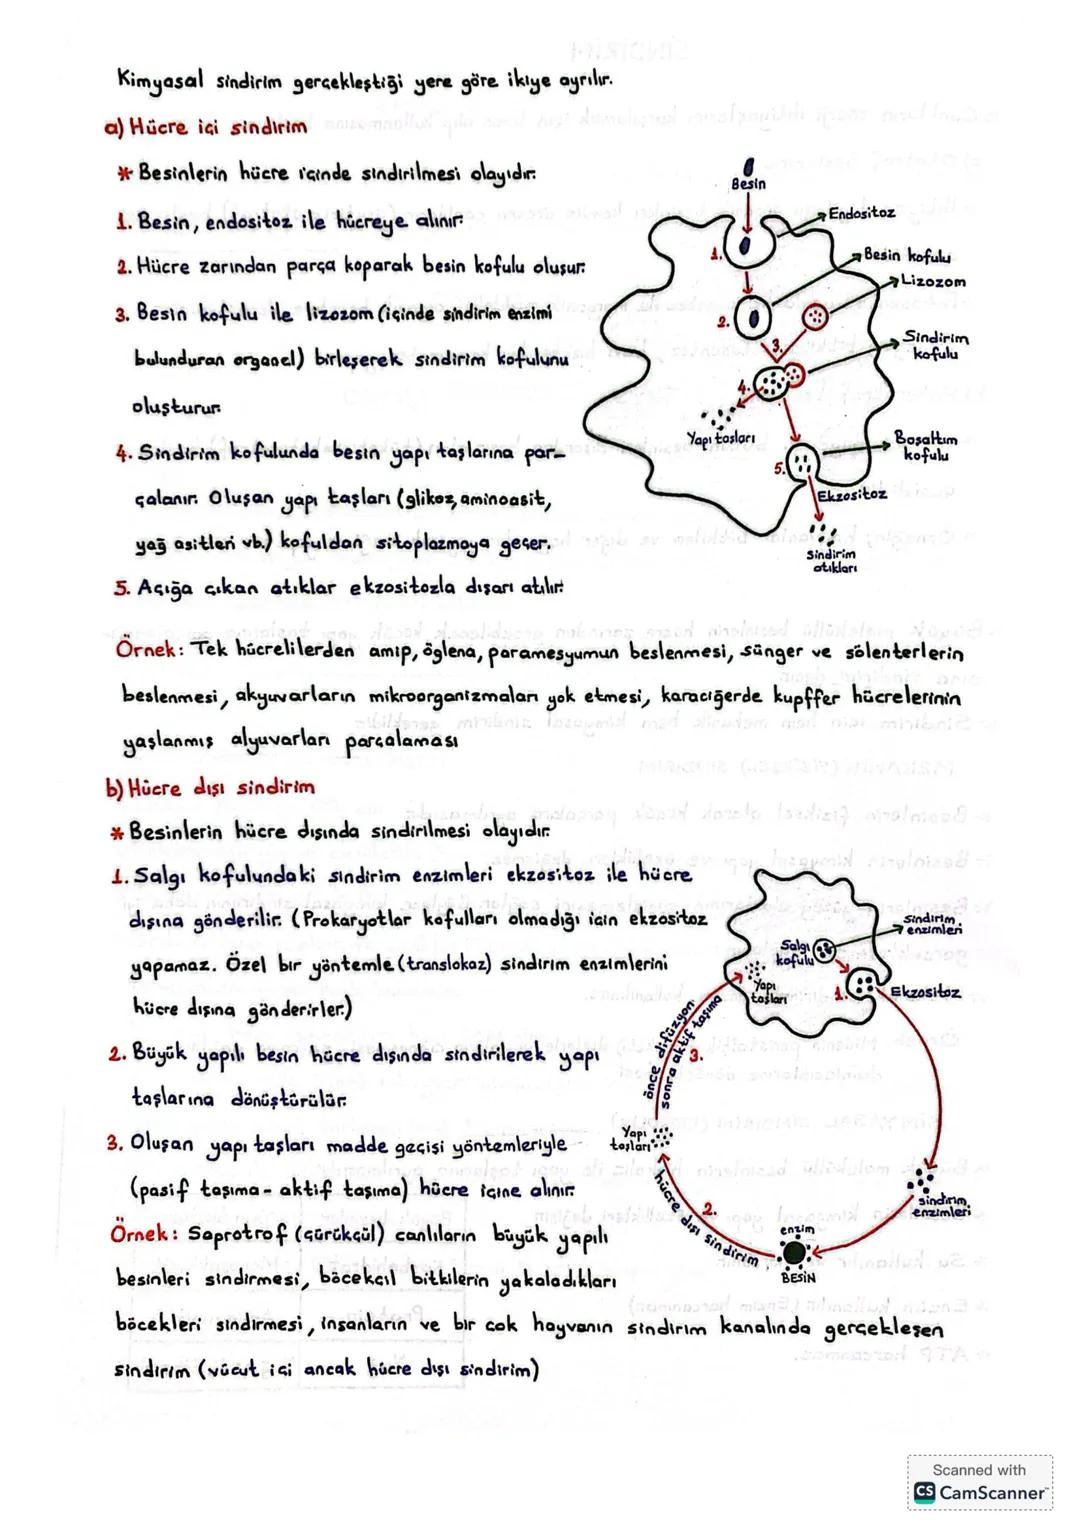 Kimyasal sindirim gerçekleştiği yere göre ikiye ayrılır.
a) Hücre içi sindirim
* Besinlerin hücre içinde sindirilmesi olayıdır.
1. Besin, endositoz ile hücreye alınır.
2. Hücre zarından parça koparak besin kofulu oluşur.
3. Besin kofulu ile lizozom (içinde sindirim enzimi
bulunduran organel) birleşerek sindirim kofulunu
oluşturur.
4. Sindirim kofulunda besin yapı taşlarına par-
çalanır. Oluşan yapı taşları (glikoz, aminoasit,
yağ asitleri vb.) kofuldan sitoplazmaya geçer.
5. Açığa çıkan atıklar ekzositozla dışarı atılır.
Besin
Endositoz
1.
Besin kofulu
Lizozom
2.
3.
Sindirim
kofulu
4.
Yapı taşları
Boşaltım
kofulu
5.
Ekzositoz
Sindirim
atıkları
Örnek: Tek hücrelilerden amip, öglena, paramesyumun beslenmesi, sünger ve sölenterlerin
beslenmesi, akyuvarların mikroorganizmaları yok etmesi, karaciğerde kupffer hücrelerinin
yaşlanmış alyuvarları parçalaması
b) Hücre dışı sindirim
* Besinlerin hücre dışında sindirilmesi olayıdır.
1. Salgı kofulundaki sindirim enzimleri ekzositoz ile hücre
dışına gönderilir. (Prokaryotlar kofulları olmadığı için ekzositoz
yapamaz. Özel bir yöntemle (translokaz) sindirim enzimlerini
hücre dışına gönderirler.)
2. Büyük yapılı besin hücre dışında sindirilerek yapı
taşlarına dönüştürülür.
3. Oluşan yapı taşları madde geçişi yöntemleriyle
(pasif taşıma - aktif taşıma) hücre içine alınır.
Örnek: Saprotrof (çürükçül) canlıların büyük yapılı
besinleri sindirmesi, böcekçil bitkilerin yakaladıkları
böcekleri sindirmesi, insanların ve bir çok hayvanın sindirim kanalında gerçekleşen
sindirim (vücut içi ancak hücre dışı sindirim)
Sindirim
enzimleri
Salgı
kofulu
Yapı
taşları
1.
Ekzositoz
önce difüzyon
sonra aktif taşıma
3.
Yapı
taşları
hücre dışı sindirim
2.
enzim
BESİN
sindirim
enzimleri
Scanned with
CS CamScanner